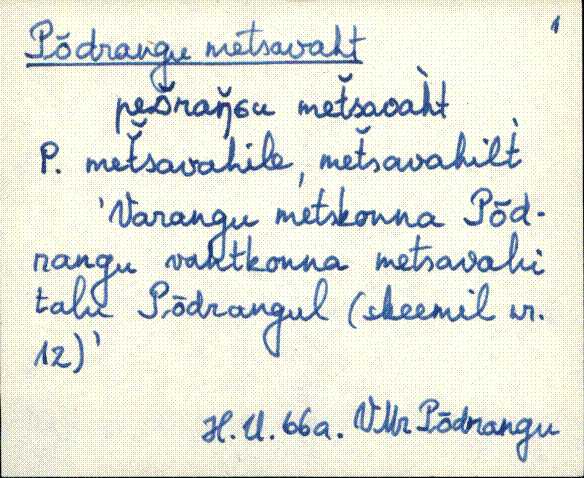 1
Põdrangu metsavaht
peᴅ̆raŋ̆ɢu met̆savàht
P. met̆savahile, met̆savahilt̀
'Varangu metskonna Põd-
rangu vahtkonna metsavahi
talu Põdrangul (skeemil nr.
12)'
H. U. 66a. VMr Põdrangu